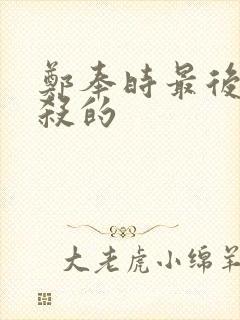 鄭奉時最後
殺的
大老虎小绵羊